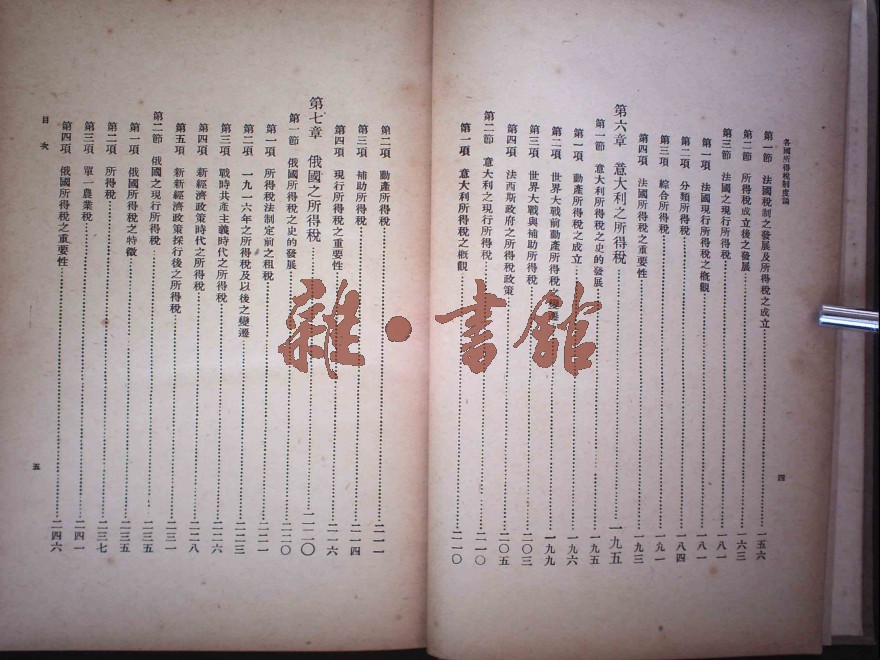 各國所得稅制度論
第一節 法國稅制之發展及所得稅之成立 一五六
第二節 所得稅成立後之發展 一六三
第三節 法國之現行所得稅 一八一
第一項 法國現行所得稅之概觀 一八一
第二項 分類所得稅 一八四
第三項 綜合所得稅 一九一
第四項 法國所得稅之重要性 一九三
第六章 意大利之所得稅 一九五
第一節 意大利所得稅之史的發展 一九五
第一項 動產所得稅之成立 一九六
第二項 世界大戰前動產所得稅之變遷 一九九
第三項 世界大戰與補助所得稅 二〇三
第四項 法西斯政府之所得稅政策 二〇五
第二節 意大利之現行所得稅 二一〇
第一項 意大利所得稅之概觀 二一〇
四
第二項 動產所得稅 二一一
第三項 補助所得稅 二一四
第四項 現行所得稅之重要性 二一六
第七章 俄國之所得稅 二二〇
第一節 俄國所得稅之史的發展 二二〇
第一項 所得稅法制定前之租稅 二二一
第二項 一九一六年之所得稅及以後之變遷 二二三
第三項 戰時共產主義時代之所得稅 二二六
第四項 新經濟政策時代之所得稅 二二八
第五項 新新經濟政策採行後之所得稅 二三一
第二節 俄國之現行所得稅 二三五
第一項 俄國所得稅之特徵 二三五
第二項 所得稅 二三七
第三項 單一農業稅 二四一
第四項 俄國所得稅之重要性 二四六
目次
五
雜·書館